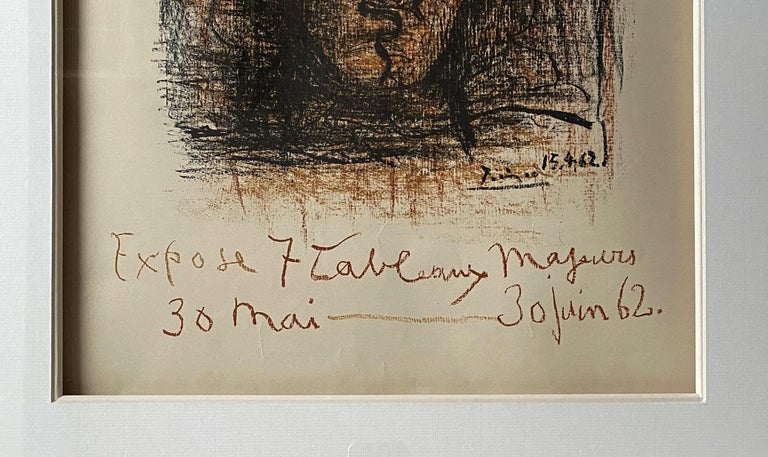 Picasso 15.4.62.
Expose 7 Tableaux Majeurs
30 Mai — 30 Juin 62.